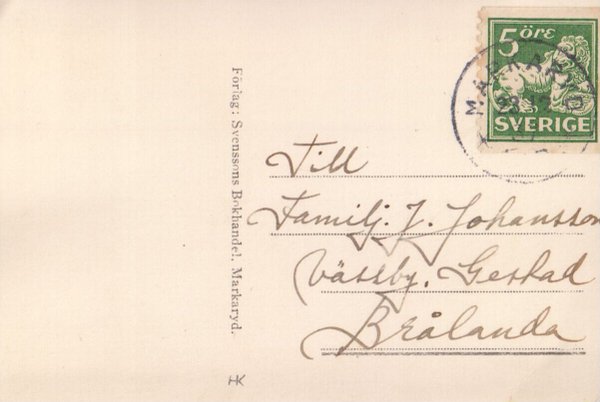 5 ÖRE
SVERIGE
MARKARYD
Förlag: Svenssons Bokhandel. Markaryd.
Till
Familj. J. Johansson
Vässby. Gestad
Brålanda
HK